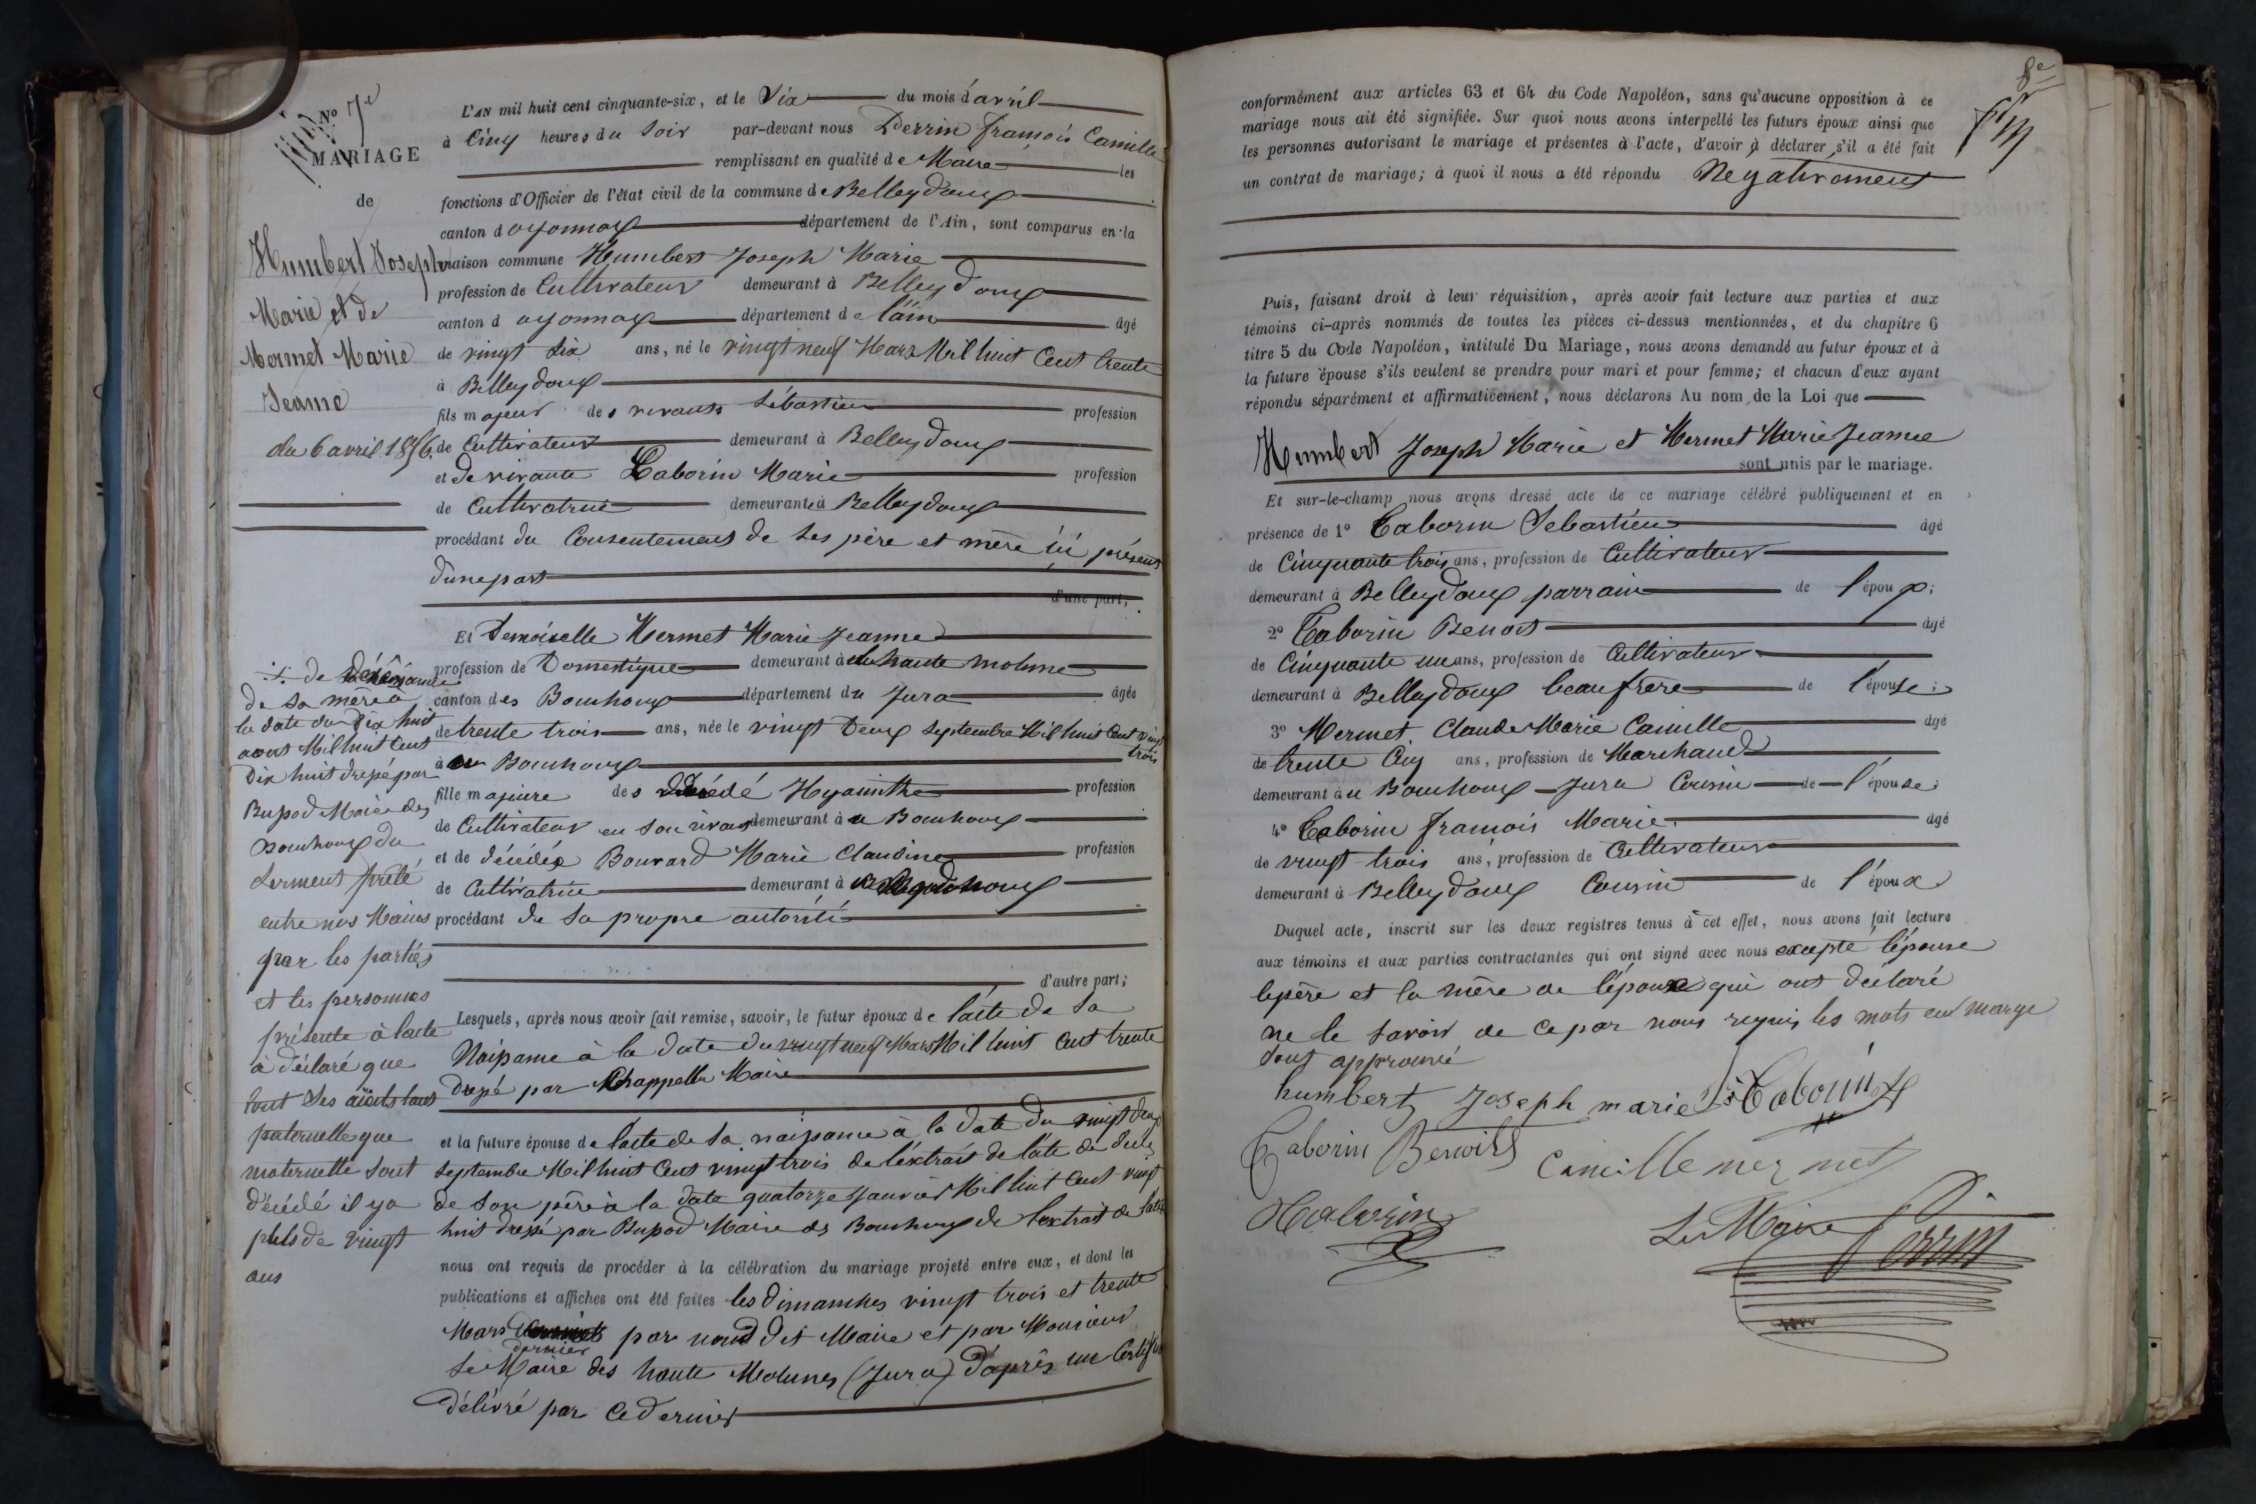 No 7e
MARIAGE
de
Humbert Joseph
Marie et de
Mermet Marie
Jeanne
du 6 avril 1856.
L'AN mil huit cent cinquante-six, et le Six du mois d'avril
à Cinq heures du Soir par-devant nous Perrin françois Camille
remplissant en qualité de Maire les
fonctions d'Officier de l'état civil de la commune de Belleydoux
canton d'oyonnax département de l'Ain, sont comparus en la
maison commune Humbert Joseph Marie
profession de Cultivateur demeurant à Belleydoux
canton d'oyonnax département de l'ain âgé
de vingt Six ans, né le vingt neuf Mars Mil huit Cent trente
à Belleydoux
fils majeur des vivants Sébastien profession
de Cultivateur demeurant à Belleydoux
et de vivante Taborin Marie profession
de Cultivatrice demeurante à Belleydoux
procédant du Consentement de Ses père et mère ici présents
d'une part
d'une part;
Et Demoiselle Mermet Marie Jeanne
profession de Domestique demeurant à la haute molune
canton des Bouchoux département du Jura âgée
de trente trois ans, née le vingt Deux Septembre Mil huit Cent vingt
trois
à au Bouchoux
fille majeure des décédé Hyacinthe profession
de Cultivateur en Son vivant demeurant à au Bouchoux
et de décédée Bouvard Marie Claudine profession
de Cultivatrice demeurant à Bouchoux
procédant de Sa propre autorité
d'autre part;
Lesquels, après nous avoir fait remise, savoir, le futur époux de l'acte de Sa
Naissance à la date du vingt neuf Mars Mil huit Cent trente
dressé par Chappellu Maire
et la future épouse de l'acte de Sa naissance à la Date du vingt deux
Septembre Mil huit Cent vingt trois de l'extrait de l'acte de décès
de Son père à la date quatorze Janvier Mil huit Cent vingt
huit dressé par Bupod Maire des Bouchoux de l'extrait de l'acte
nous ont requis de procéder à la célébration du mariage projeté entre eux, et dont les
publications et affiches ont été faites les dimanches vingt trois et trente
Mars par nous dit Maire et par Monsieur
dernier
Le Maire des haute Molunes (Jura) D'après un Certificat
Délivré par ce dernier
de
de Sa mère à
la date du Dix huit
aout Mil huit Cent
Dix huit dressé par
Bupod Maire des
Bouchoux du
Serment prêté
entre nos Mains
par les parties
et les personnes
présente à l'acte
à déclaré que
tout Ses aieuls tant
paternelle que
maternelle Sont
décédé il y a
plus de vingt
ans
8e
conformément aux articles 63 et 64 du Code Napoléon, sans qu'aucune opposition à ce
mariage nous ait été signifiée. Sur quoi nous avons interpellé les futurs époux ainsi que
les personnes autorisant le mariage et présentes à l'acte, d'avoir à déclarer s'il a été fait
un contrat de mariage; à quoi il nous a été répondu Negativement
Puis, faisant droit à leur réquisition, après avoir fait lecture aux parties et aux
témoins ci-après nommés de toutes les pièces ci-dessus mentionnées, et du chapitre 6
titre 5 du Code Napoléon, intitulé Du Mariage, nous avons demandé au futur époux et à
la future épouse s'ils veulent se prendre pour mari et pour femme; et chacun d'eux ayant
répondu séparément et affirmativement, nous déclarons Au nom de la Loi que
Humbert Joseph Marie et Mermet Marie Jeanne
sont unis par le mariage.
Et sur-le-champ nous avons dressé acte de ce mariage célébré publiquement et en
présence de 1° Taborin Sebastien âgé
de Cinquante trois ans, profession de Cultivateur
demeurant à Belleydoux parrain de l'époux;
2° Taborin Benoit âgé
de Cinquante un ans, profession de Cultivateur
demeurant à Belleydoux beau frère de l'épouse;
3° Mermet Claude Marie Camille âgé
de trente Cinq ans, profession de Marchand
demeurant à u Bouchoux Jura Cousin de l'épouse;
4° Taborin françois Marie âgé
de vingt trois ans, profession de Cultivateur
demeurant à Belleydoux Cousin de l'époux
Duquel acte, inscrit sur les deux registres tenus à cet effet, nous avons fait lecture
aux témoins et aux parties contractantes qui ont signé avec nous excepté l'épouse
le père et la mère de l'époux qui ont déclaré
ne le Savoir de ce par nous requis les mots en marge
Sont approuvé
humbert Joseph marie Taborin
Taborin Benoit Camille mermet
Taborin
Le Maire Perrin